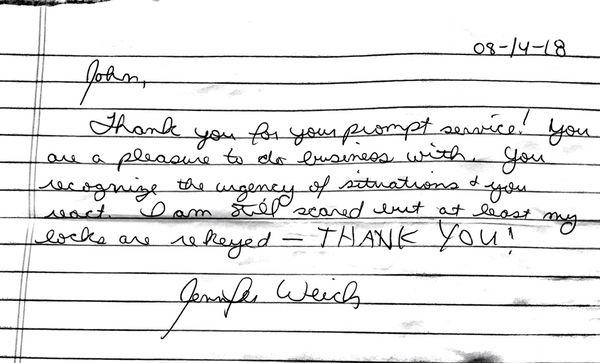 08-14-18
John,
Thank you for your prompt service! You
are a pleasure to do business with. You
recognize the urgency of situations & you
react. I am still scared but at least my
locks are rekeyed — THANK YOU!
Jennifer Weich